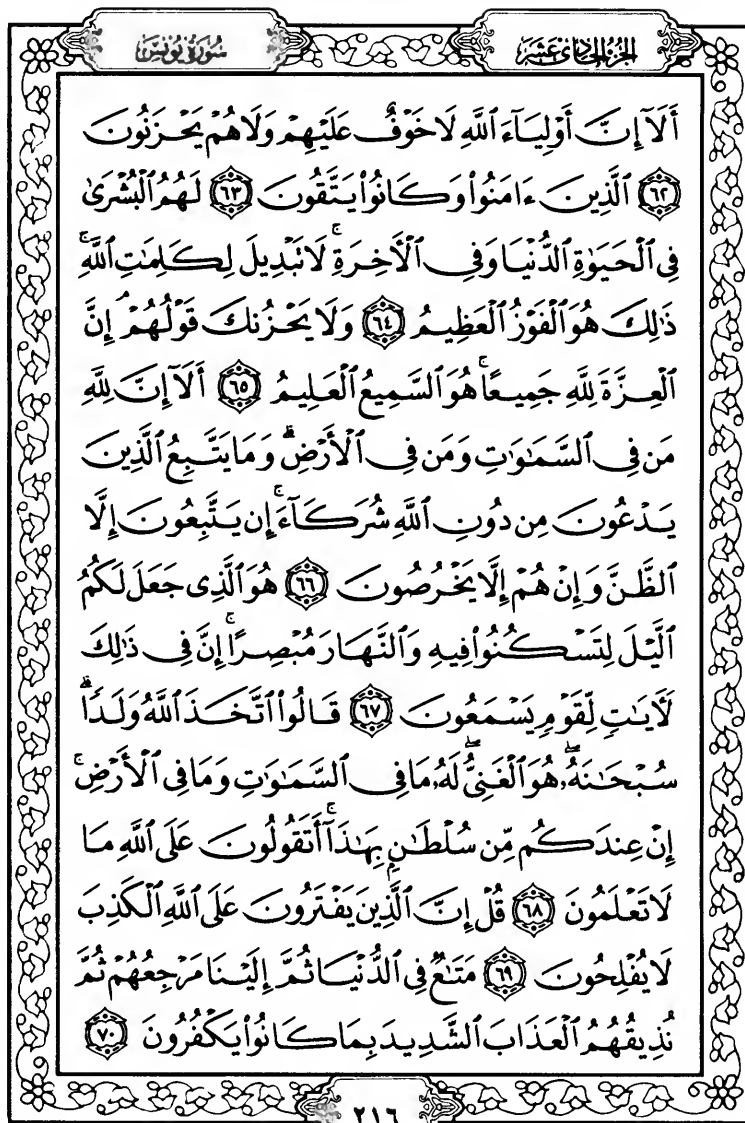 الجزء الحادي عشر
سورة يونس
أَلَآ إِنَّ أَوْلِيَآءَ ٱللَّهِ لَا خَوْفٌ عَلَيْهِمْ وَلَا هُمْ يَحْزَنُونَ
٦٢ ٱلَّذِينَ ءَامَنُوا۟ وَكَانُوا۟ يَتَّقُونَ ٦٣ لَهُمُ ٱلْبُشْرَىٰ
فِى ٱلْحَيَوٰةِ ٱلدُّنْيَا وَفِى ٱلْأَخِرَةِ ۚ لَا تَبْدِيلَ لِكَلِمَٰتِ ٱللَّهِ ۚ
ذَٰلِكَ هُوَ ٱلْفَوْزُ ٱلْعَظِيمُ ٦٤ وَلَا يَحْزُنكَ قَوْلُهُمْ ۘ إِنَّ
ٱلْعِزَّةَ لِلَّهِ جَمِيعًا ۚ هُوَ ٱلسَّمِيعُ ٱلْعَلِيمُ ٦٥ أَلَآ إِنَّ لِلَّهِ
مَن فِى ٱلسَّمَٰوَٰتِ وَمَن فِى ٱلْأَرْضِ ۗ وَمَا يَتَّبِعُ ٱلَّذِينَ
يَدْعُونَ مِن دُونِ ٱللَّهِ شُرَكَآءَ ۚ إِن يَتَّبِعُونَ إِلَّا
ٱلظَّنَّ وَإِنْ هُمْ إِلَّا يَخْرُصُونَ ٦٦ هُوَ ٱلَّذِى جَعَلَ لَكُمُ
ٱلَّيْلَ لِتَسْكُنُوا۟ فِيهِ وَٱلنَّهَارَ مُبْصِرًا ۚ إِنَّ فِى ذَٰلِكَ
لَأَيَٰتٍ لِّقَوْمٍ يَسْمَعُونَ ٦٧ قَالُوا۟ ٱتَّخَذَ ٱللَّهُ وَلَدًا ۗ
سُبْحَٰنَهُۥ ۖ هُوَ ٱلْغَنِىُّ ۖ لَهُۥ مَا فِى ٱلسَّمَٰوَٰتِ وَمَا فِى ٱلْأَرْضِ ۚ
إِنْ عِندَكُم مِّن سُلْطَٰنٍۭ بِهَٰذَآ ۚ أَتَقُولُونَ عَلَى ٱللَّهِ مَا
لَا تَعْلَمُونَ ٦٨ قُلْ إِنَّ ٱلَّذِينَ يَفْتَرُونَ عَلَى ٱللَّهِ ٱلْكَذِبَ
لَا يُفْلِحُونَ ٦٩ مَتَٰعٌ فِى ٱلدُّنْيَا ثُمَّ إِلَيْنَا مَرْجِعُهُمْ ثُمَّ
نُذِيقُهُمُ ٱلْعَذَابَ ٱلشَّدِيدَ بِمَا كَانُوا۟ يَكْفُرُونَ ٧٠
٢١٦